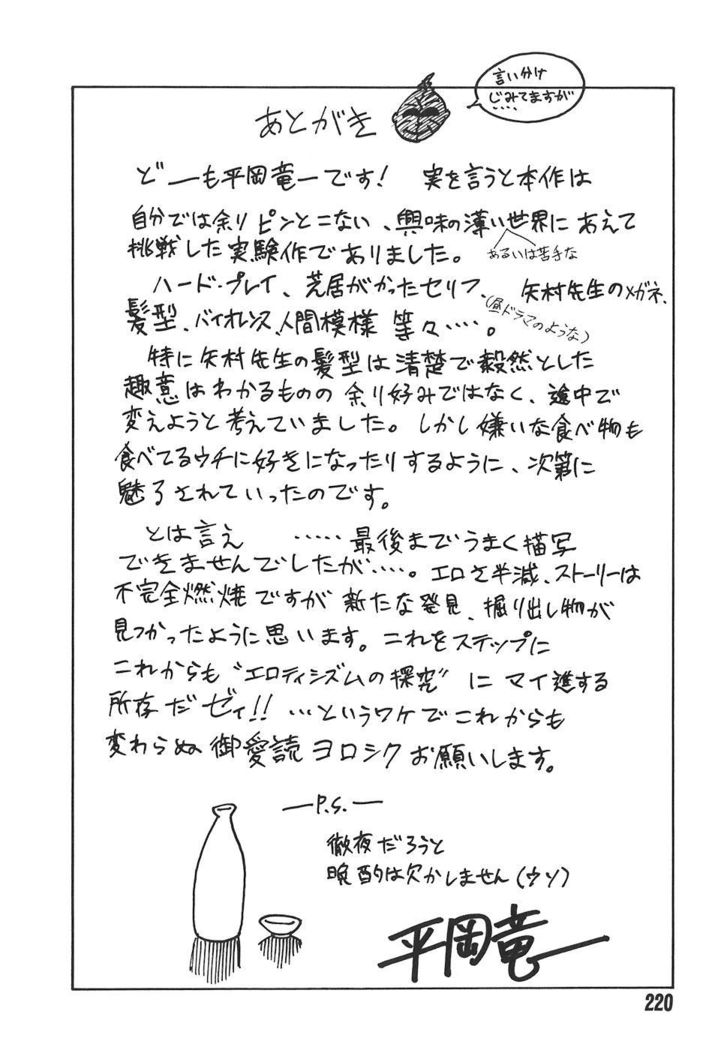 あとがき
言い分け
じみてますが
どーも平岡竜一です! 実を言うと本作は
自分では余りピンとこない、興味の薄い世界にあえて
あるいは苦手な
挑戦した実験作でありました。
ハード・プレイ、芝居がかったセリフ、矢村先生のメガネ、
(昼ドラマのような)
髪型、バイオレンス、人間模様 等々‥‥。
特に矢村先生の髪型は清楚で毅然とした
趣意はわかるものの 余り好みではなく、途中で
変えようと考えていました。しかし嫌いな食べ物も
食べてるウチに好きになったりするように、次第に
魅了されていったのです。
とは言え ‥‥‥最後までうまく描写
できませんでしたが‥‥。エロさ半減、ストーリーは
不完全燃焼ですが 新たな発見、掘り出し物が
見つかったように思います。これをステップに
これからも“エロティシズムの探究”にマイ進する
所存だゼィ!! …というワケでこれからも
変わらぬ御愛読ヨロシクお願いします。
—P.S.—
徹夜だろうと
晩酌は欠かしません(ウソ)
平岡竜一
220